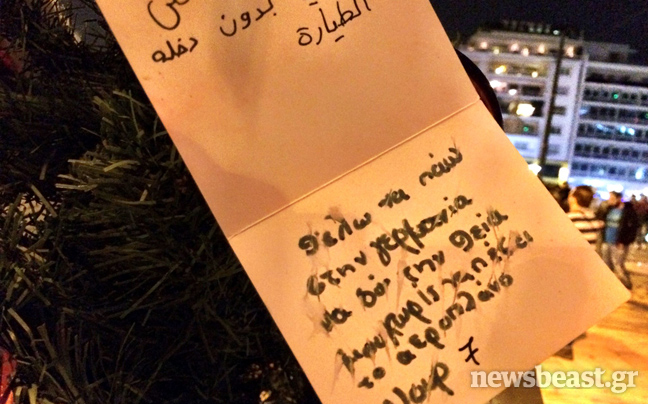 بدون دخله
الطيارة
θελω να πάω
στην γερμανία
να δω την θεία
μου χωρίς να πέσει
το αεροπλάνο
7
newsbeast.gr